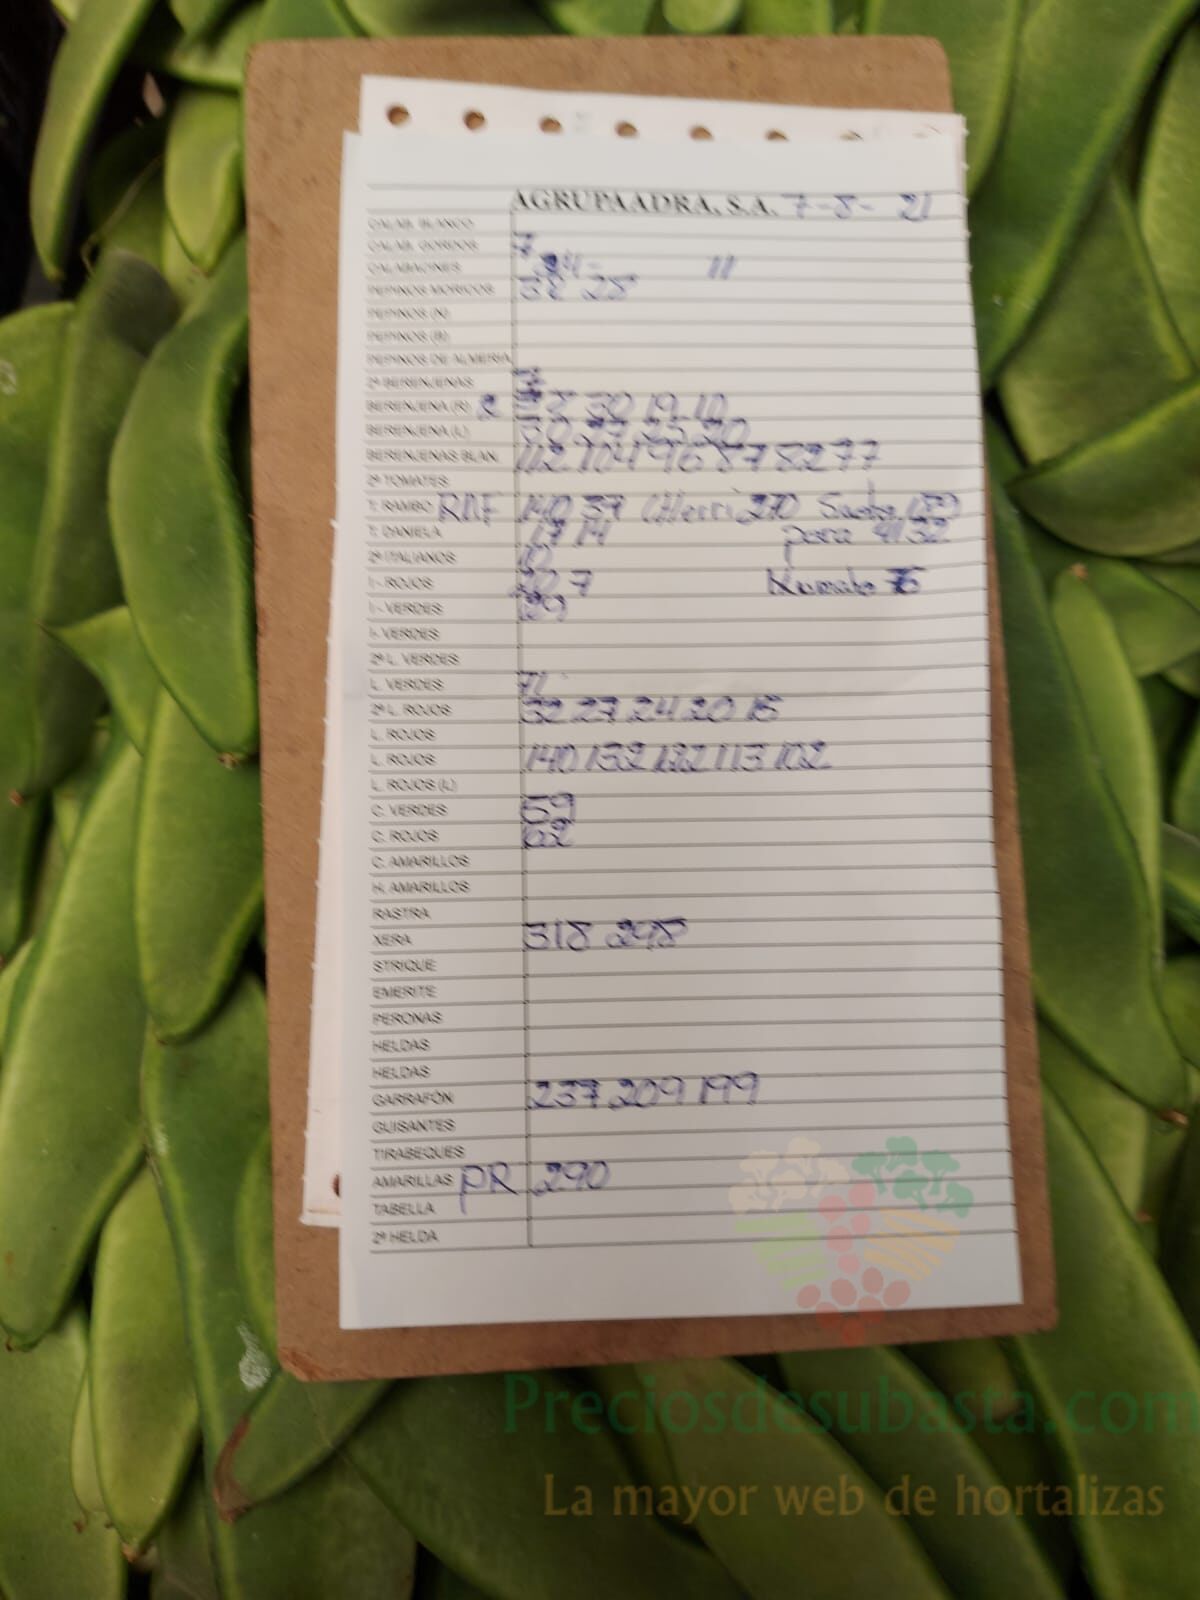 AGRUPAADRA, S.A. 7-8- 21
CALAB. BLANCO
CALAB. GORDOS 7
CALABACINES 24- 11
PEPINOS MORICOS 32 28
PEPINOS (N)
PEPINOS (B)
PEPINOS DE ALMERIA
2ª BERENJENAS
BERENJENA (R) 30 19 10
BERENJENA (L) 30 27 23 20
BERENJENAS BLAN. 112 104 96 87 82 77
2ª TOMATES
T. RAMBO RAF 140 37 270
T. DANELA 17 14 pera 41 32
2ª ITALIANOS 12
I - ROJOS 7 Kumato 75
I - VERDES
I- VERDES
2ª L. VERDES
L. VERDES 71
2ª L. ROJOS 32 27 24 20 15
L. ROJOS
L. ROJOS 140 132 122 113 102
L. ROJOS (L)
C. VERDES 59
C. ROJOS 62
C. AMARILLOS
H. AMARILLOS
RASTRA
XERA 318 298
STRIQUE
EMERITE
PERONAS
HELDAS
HELDAS
GARRAFÓN 237 209 199
GUISANTES
TIRABEQUES
AMARILLAS PR 290
TABELLA
2ª HELDA
Preciosdesubasta.com
La mayor web de hortalizas